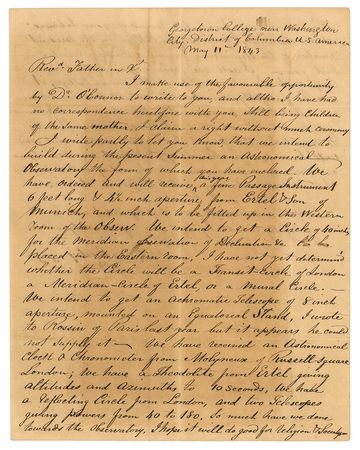 Georgetown College near Washington
City District of Columbia U.S. America
May 11th 1843
Revd. Father in
I make use of the favourable opportunity
by Dr. O'Connor to write to you, and altho I have had
no correspondence heretofore with you, Still being Children
of the Same mother, I claim a right without much ceremony
I write partly to let you know, that we intend to
build during the present Summer an Astronomical
Observatory the form of which you have enclosed. We
have ordered and will receive a fine Passage Instrument
6 feet long & 4½ inch aperture from Ertel & Son of
Munich, and which is to be fitted up in the Western
room of the Observ. We intend to get a Circle of
for the Meridian observation of Declination &c
placed in the Eastern room, I have not yet determined
whether the Circle will be a Transit-Circle of London
a Meridian-Circle of Ertel, or a Mural Circle.—
We intend to get an Achromatic Telescope of 8 inch
aperture, mounted on an Equatoreal Stand, I wrote
to Rossin of Paris last year but it appears he could
not Supply it — We have received an Astronomical
Clock & Chronometer from Molyneux of Russell Square
London; We have a Theodolite from Ertel giving
altitudes and Azimuths to 10 seconds, We have
a Reflecting Circle from London, and two Telescopes
giving powers from 40 to 180. So much have we done
towards the observatory, I hope it will do good for religion & Society